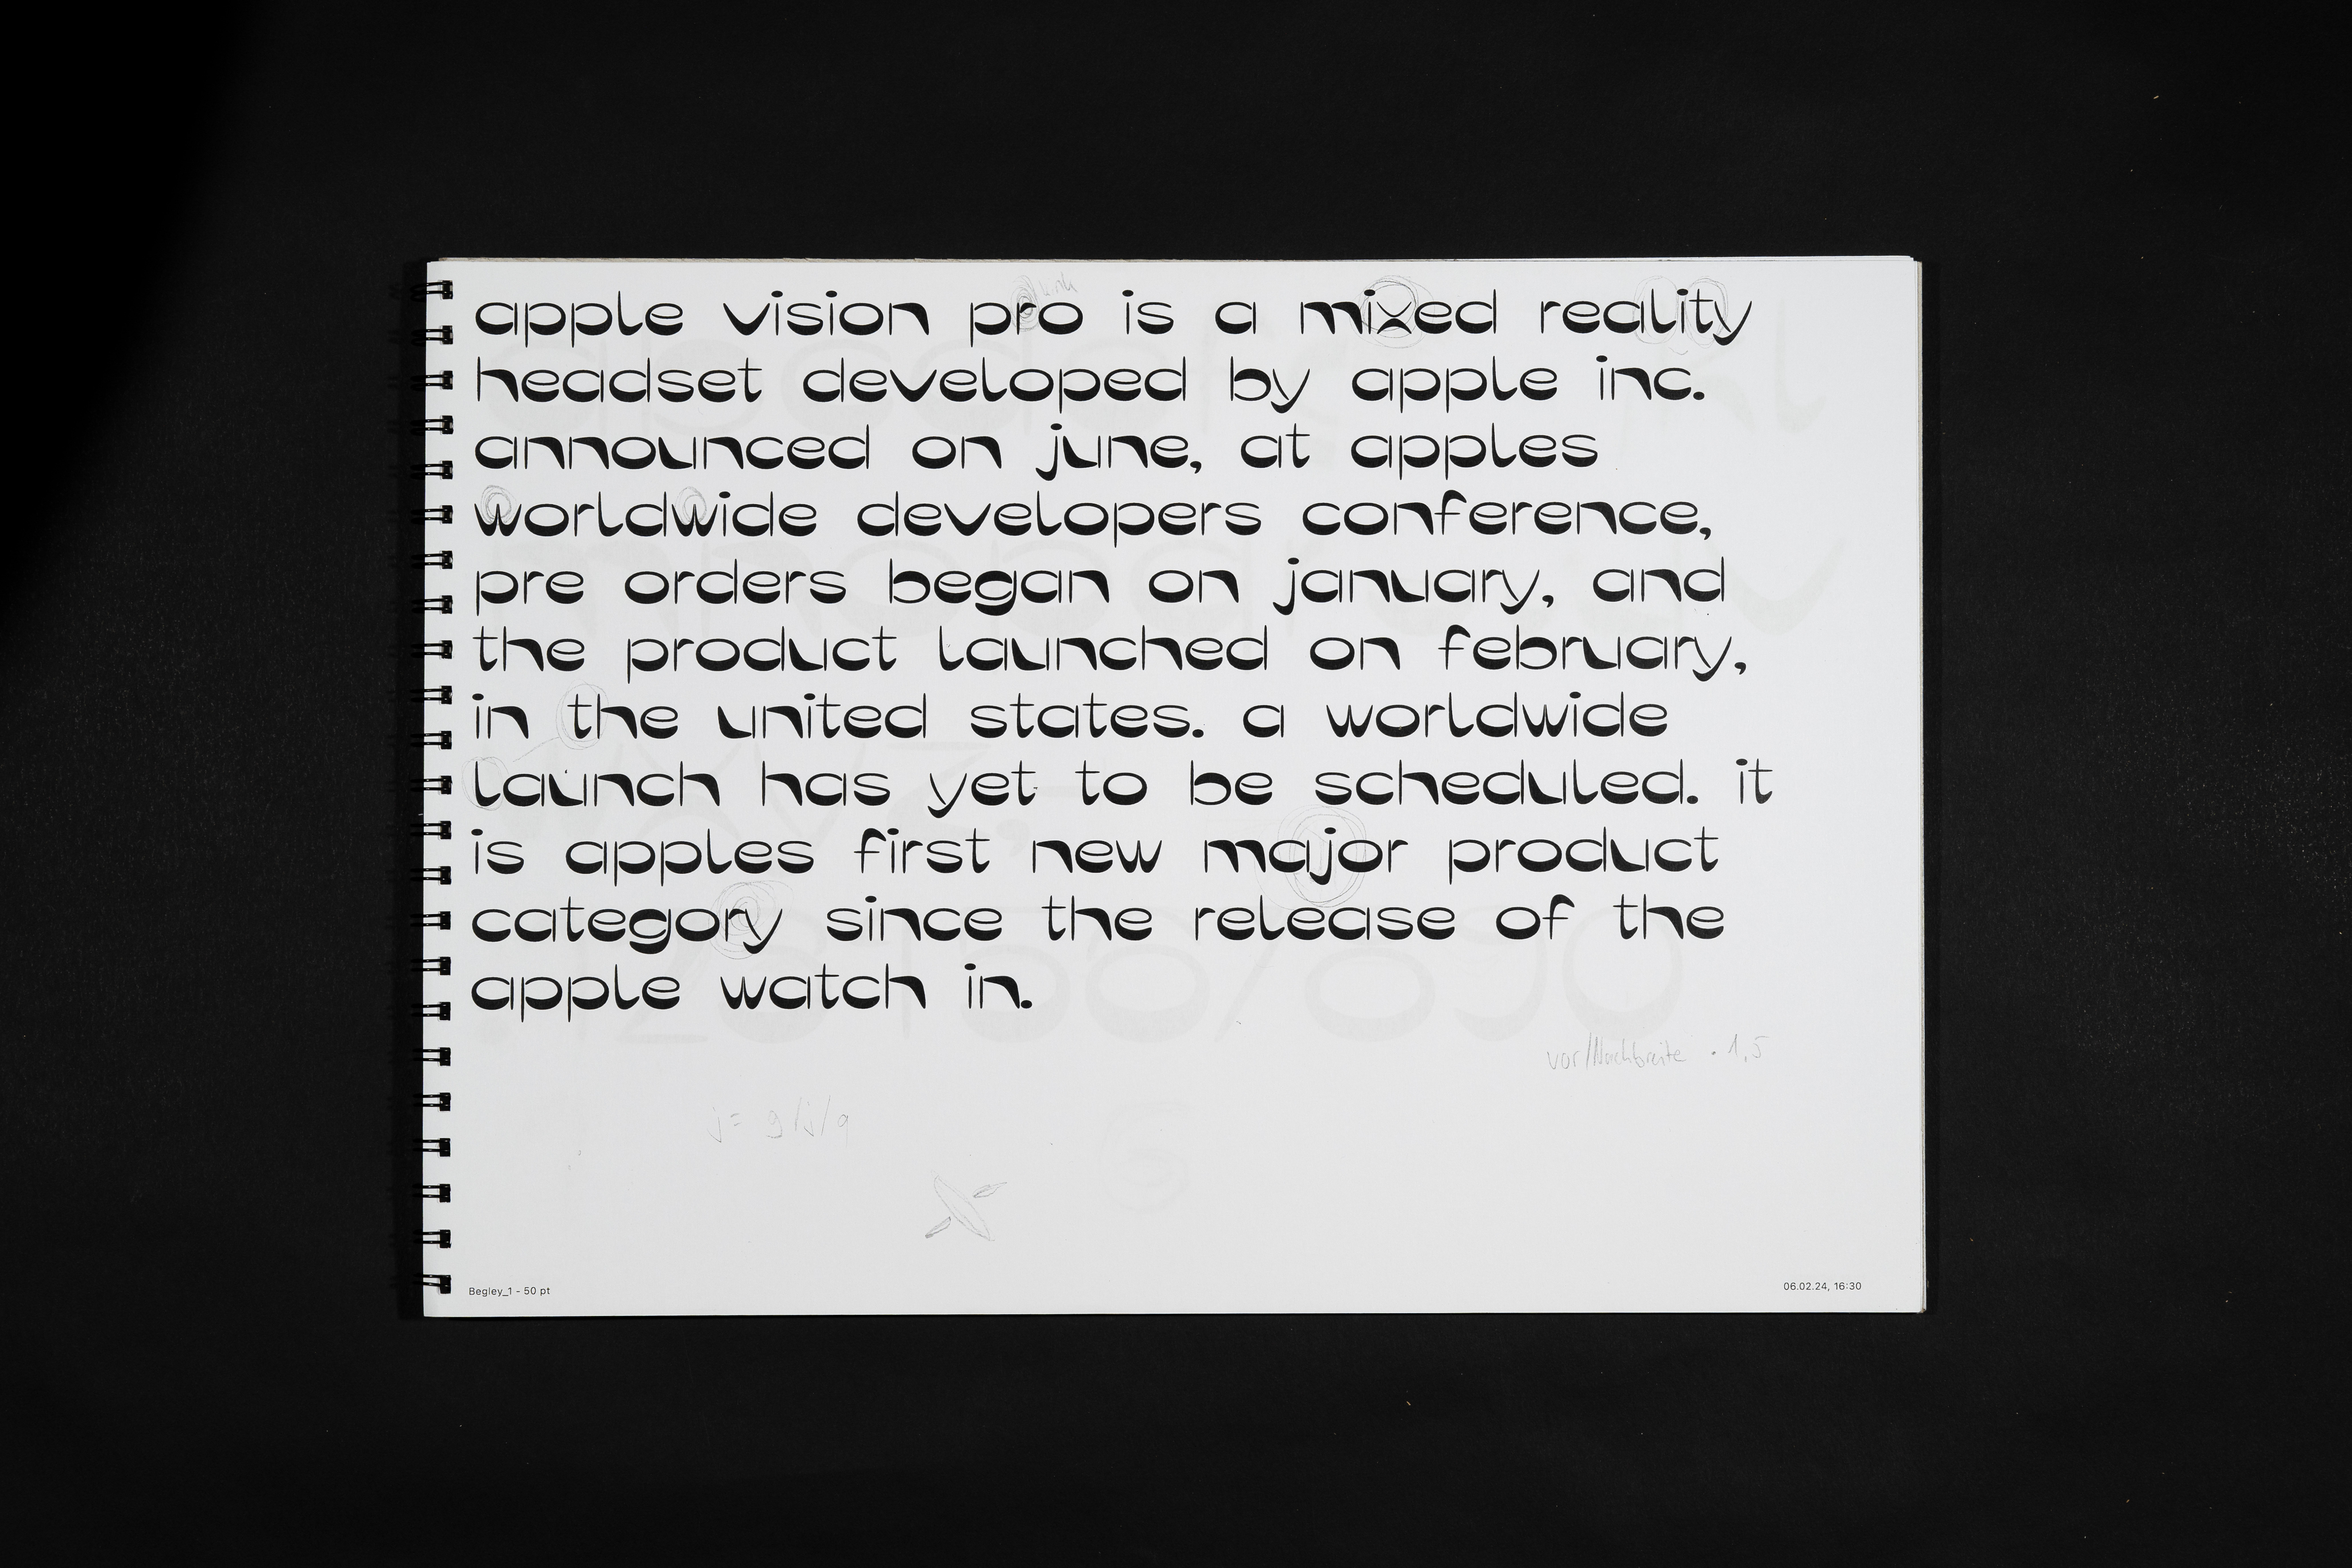 apple vision pro is a mixed reality
headset developed by apple inc.
announced on june, at apples
worldwide developers conference,
pre orders began on january, and
the product launched on february,
in the united states. a worldwide
launch has yet to be scheduled. it
is apples first new major product
category since the release of the
apple watch in.
vor/Nachbreite · 1,5
j = g/j/q
Begley_1 - 50 pt
06.02.24, 16:30